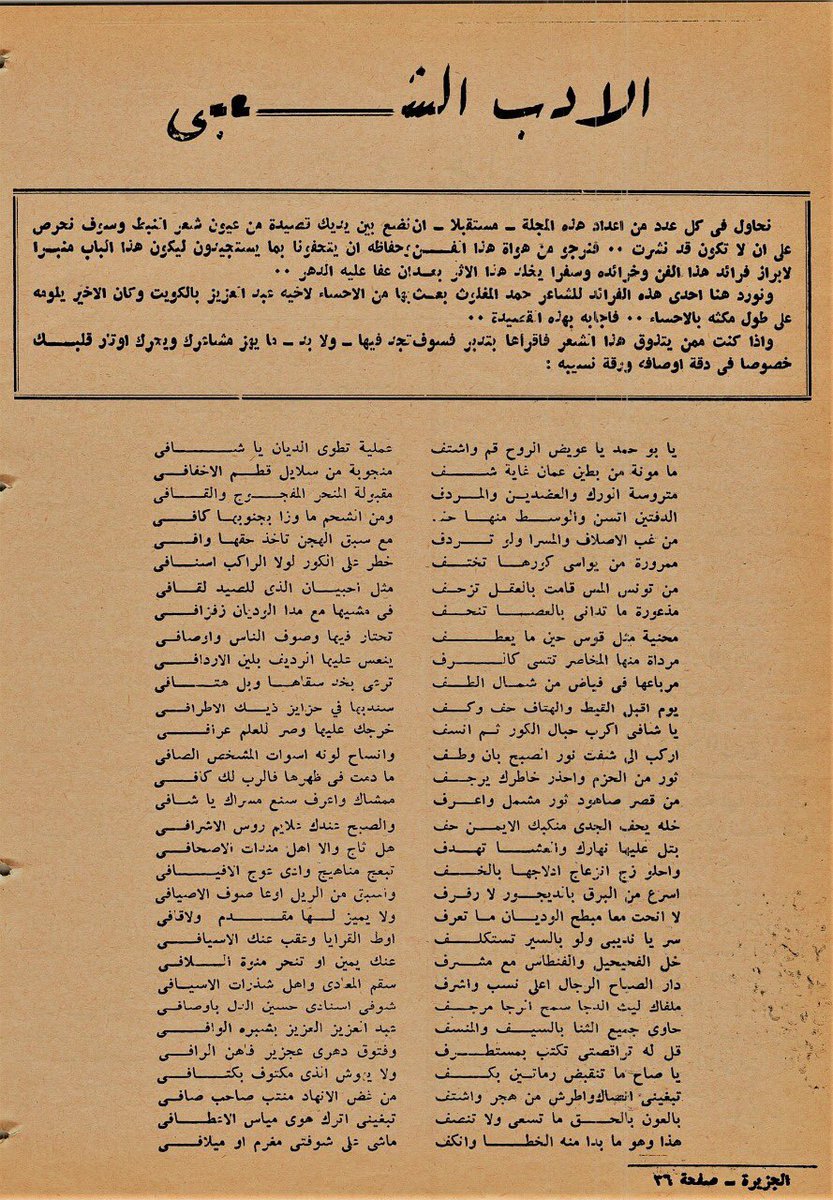 الادب الشعبي
نحاول فى كل عدد من اعداد هذه المجلة ـ مستقبلا ـ ان نضع بين يديك قصيدة من عيون شعر النبط وسوف نحرص
على ان لا تكون قد نشرت ٠٠ فنرجو من هواة هذا الفن وحفاظه ان يتحفونا بما يستجيدون ليكون هذا الباب منبرا
لابراز فرائد هذا الفن وخرائده وسفرا يخلد هذا الاثر بعد ان عفا عليه الدهر ٠٠
ونورد هنا احدى هذه الفرائد للشاعر حمد المغلوث بعث بها من الاحساء لاخيه عبد العزيز بالكويت وكان الاخير يلومه
على طول مكثه بالاحساء ٠٠ فاجابه بهذه القصيدة ٠٠
واذا كنت ممن يتذوق هذا الشعر فاقرأها بتدبر فسوف تجد فيها ـ ولا بد ـ ما يهز مشاعرك ويحرك اوتار قلبك
خصوصا فى دقة اوصافه ورقة نسيبه :
يا بو حمد يا عويض الروح قم واشتف عملية تطوى الديان يا شافى
ما مونة من بطين عمان غاية شف منجوبة من سلايل قطم الاخفافى
متروسة الورك والعضدين والمردف مقبولة المنحر المفجوج والقافى
الدفتين اتسن والوسط منها ومن الشحم ما وزا بجنوبها كافى
من غب الاصلاف والمسرا ولو تردف مع سبق الهجن تاخذ حقها وافى
ممرورة من يواسى كورها تختف خطر على الكور لولا الراكب اسنافى
من تونس المس قامت بالعقل تزحف مثل الذى للصيد لقافى
مذعورة ما تدانى بالعصا تنحف فى مشيها مع مدا الوديان زفزافى
محنية مثل قوس حين ما يعطف تحتار فيها وصوف الناس واوصافى
مرداة منها المخاصر تتسى كالرف ينعس عليها الرديف بلين الاردافى
مرباعها فى فياض من شمال الطف ترعى بخد سقاها وبل هتافى
يوم اقبل القيظ والهتاف حف وكف سنديها في حزايز ذيك الاطرافى
يا شافى اكرب حبال الكور ثم انسف خرجك عليها وصر للعلم عرافى
اركب الى شفت نور الصبح بان وطف وانساح لونه اسوات المشخص الصافى
ثور من الحزم واحذر خاطرك يرجف ما دمت فى ظهرها فالرب لك كافى
من قصر صاهود ثور مشمل واعرف ممشاك واعرف سنع مسراك يا شافى
خله يحف الجدى منكبك الايمن حف والصبح عندك علايم روس الاشرافى
بتل عليها نهارك والعشا تهدف هل ثاج والا اهل الاصحافى
واحلو زج انزعاج ادلاجها بالخف تبعج مناهيج وادى عوج الافيافى
اسرع من البرق بالديجور لا رفرف واسبق من الريل اوعا صوف الاصيافى
لا انحت معا مبطح الوديان ما تعرف ولا يميز لها مقدم ولاقافى
سر يا نديبى ولو بالسير تستكلف اوط القرايا وعقب عنك الاسيافى
خل الفحيحيل والفنطاس مع مشرف عنك يمين او تنحر منوة اللافى
دار الصباح الرجال اعلى نسب واشرف سقم المعادى واهل شذرات الاسيافى
ملفاك ليث الدجا سمح الرجا مرجف شوفى اسنادى حسين الدل باوصافى
حاوى جميع الثنا بالسيف والمنسف عبد العزيز العزيز بشبره الوافى
قل له تراقصتى تكتب بمستطرف وفتوق دهرى عجزير فاهن الرافى
يا صاح ما تنقبض رماتين بكف ولا يهوش الذى مكتوف بكتافى
تبغينى انصاك واطرش من هجر واشتف من غض الانهاد منتب صاحب صافى
بالعون بالحق ما تسعى ولا تنصف تبغينى اترك هوى مياس الاعطافى
هذا وهو ما بدا منه الخطا وانكف ماشى على شوفتى مغرم او ميلافى
الجزيرة ـ صفحة ٣٦